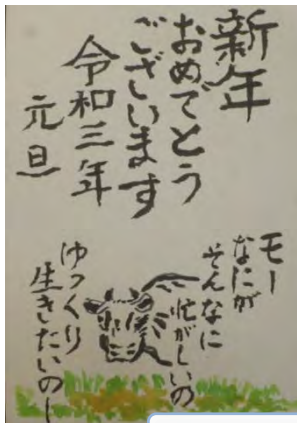 新年
おめでとう
ございます
令和三年
元旦
モー
なにが
そんなに
忙がしいの
ゆっくり
生きたいのー